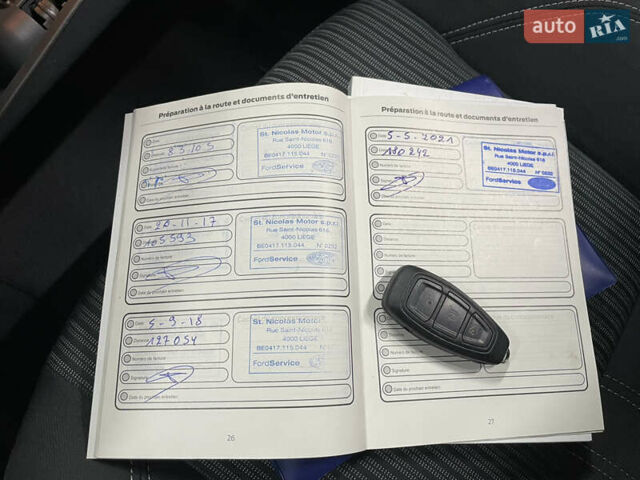 auto RIA
.com
Préparation à la route et documents d'entretien
Date
83105
Numéro de facture
Date du prochain entretien
St. Nicolas Motor s.p.r.l.
Rue Saint-Nicolas 618
4000 LIEGE
BE0417.115.044 N° 0292
FordService
Date 20-11-17
105593
Numéro de facture
Signature
Date du prochain entretien
St. Nicolas Motor s.p.r.l.
Rue Saint-Nicolas 618
4000 LIEGE
BE0417.115.044 N° 0292
FordService
Date 5-9-18
Distance 127054
Numéro de facture
Signature
Date du prochain entretien
St. Nicolas Motor
Rue Saint-Nicolas 618
4000 LIEGE
BE0417.115.044
FordService
26
Préparation à la route et documents d'entretien
Date 5-5-2021
180242
Numéro de facture
Signature
Date du prochain entretien
St. Nicolas Motor s.p.r.l.
Rue Saint-Nicolas 618
4000 LIEGE
BE0417.115.044 N° 0292
FordService
Date
Distance
Numéro de facture
Numéro de facture
Signature
Date du prochain entretien
27